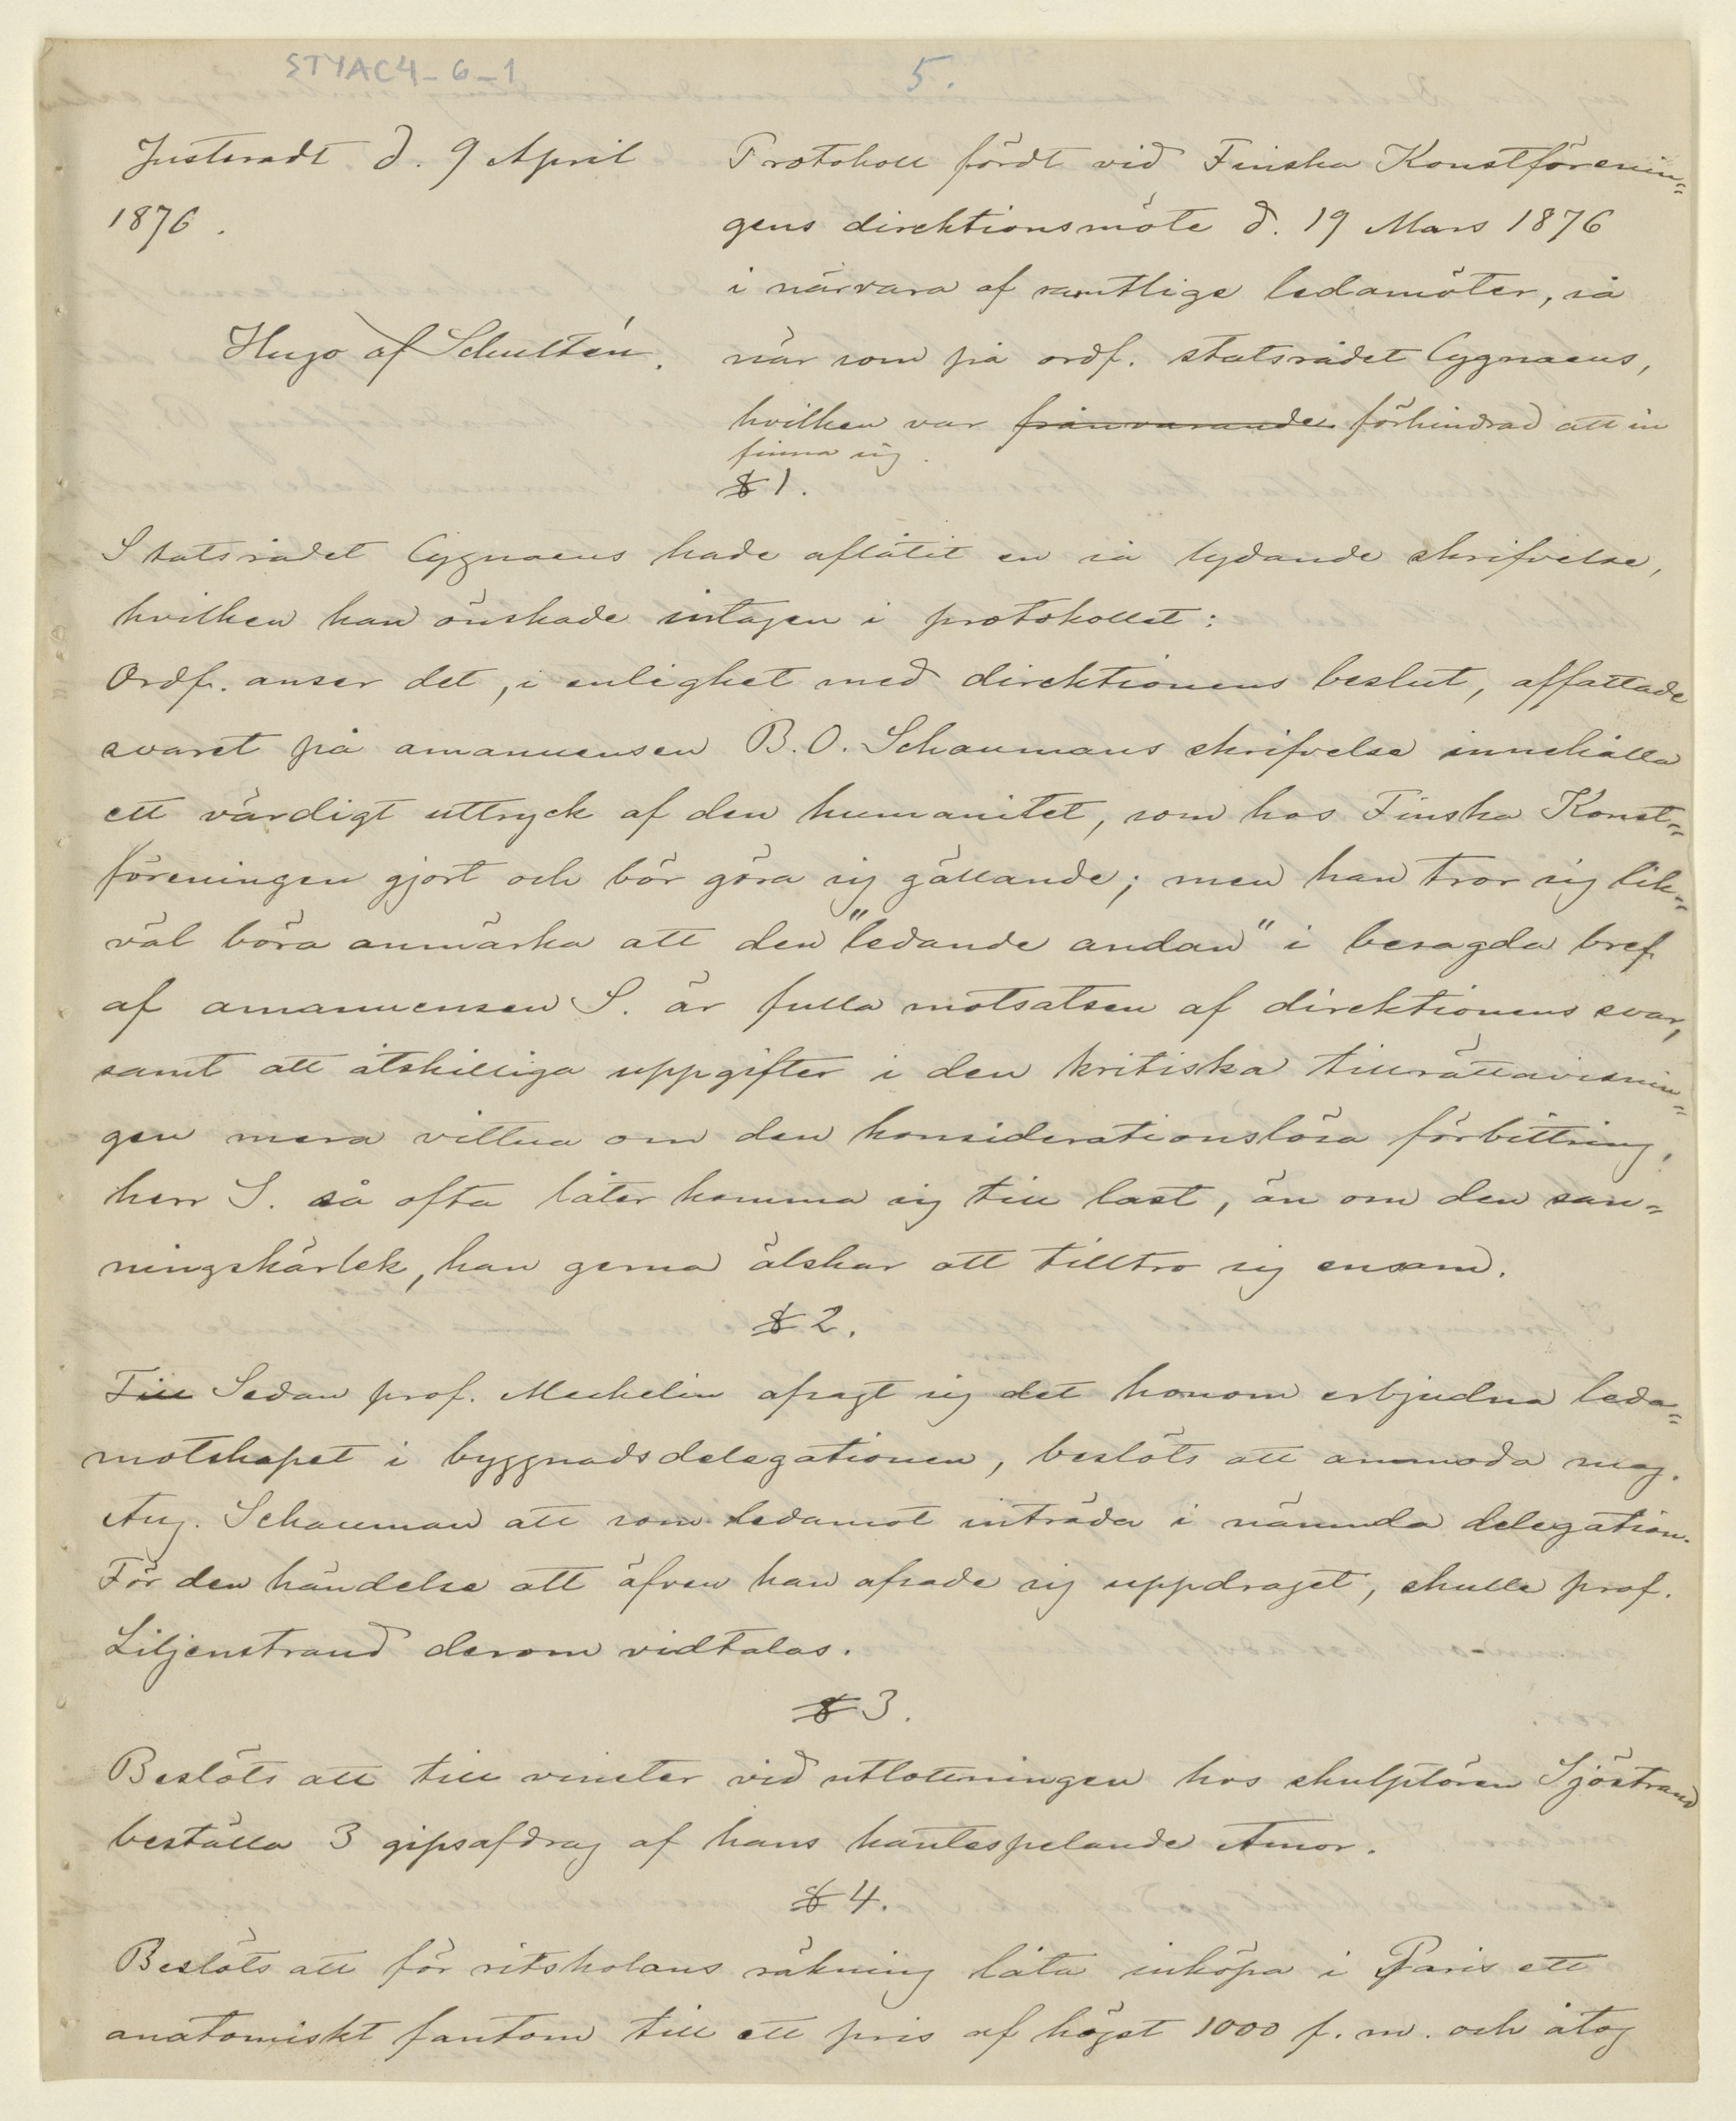 STYAC4-6-1
5.
Justeradt d. 9 April
1876.
Hugo af Schultén.
Protokoll fördt vid Finska Konstförenin=
gens direktionsmöte d. 19 Mars 1876
i närvara af samtlige ledamöter, så
när som på ordf. statsrådet Cygnaeus,
hvilken var frånvarande förhindrad att in
finna sig.
§ 1.
Statsrådet Cygnaeus hade aflåtit en så lydande skrifvelse,
hvilken han önskade intagen i protokollet:
Ordf. anser det, i enlighet med direktionens beslut, affattade
svaret på amanuensen B.O. Schaumans skrifvelse innehålla
ett värdigt uttryck af den humanitet, som hos Finska Konst=
föreningen gjort och bör göra sig gällande; men han tror sig lik=
väl böra anmärka att den "ledande andan" i besagda bref
af amanuensen S. är fulla motsatsen af direktionens svar,
samt att åtskilliga uppgifter i den kritiska tillrättavisnin=
gen mera vittna om den konsiderationslösa förbittring,
herr S. så ofta låter komma sig till last, än om den san=
ningskärlek, han gerna älskar att tilltro sig ensam.
§ 2.
Till Sedan prof. Mechelin afsagt sig det honom erbjudna leda=
motskapet i byggnadsdelegationen, beslöts att anmoda mag.
Aug. Schauman att som ledamot inträda i nämnda delegation.
För den händelse att äfven han afsade sig uppdraget, skulle prof.
Liljenstrand derom vidtalas.
§ 3.
Beslöts att till vinster vid utlottningen hos skulptören Sjöstrand
beställa 3 gipsafdrag af hans kantespelande Amor.
§ 4.
Beslöts att för ritskolans räkning låta inköpa i Paris ett
anatomiskt fantom till ett pris af högst 1000 f. m. och åtog